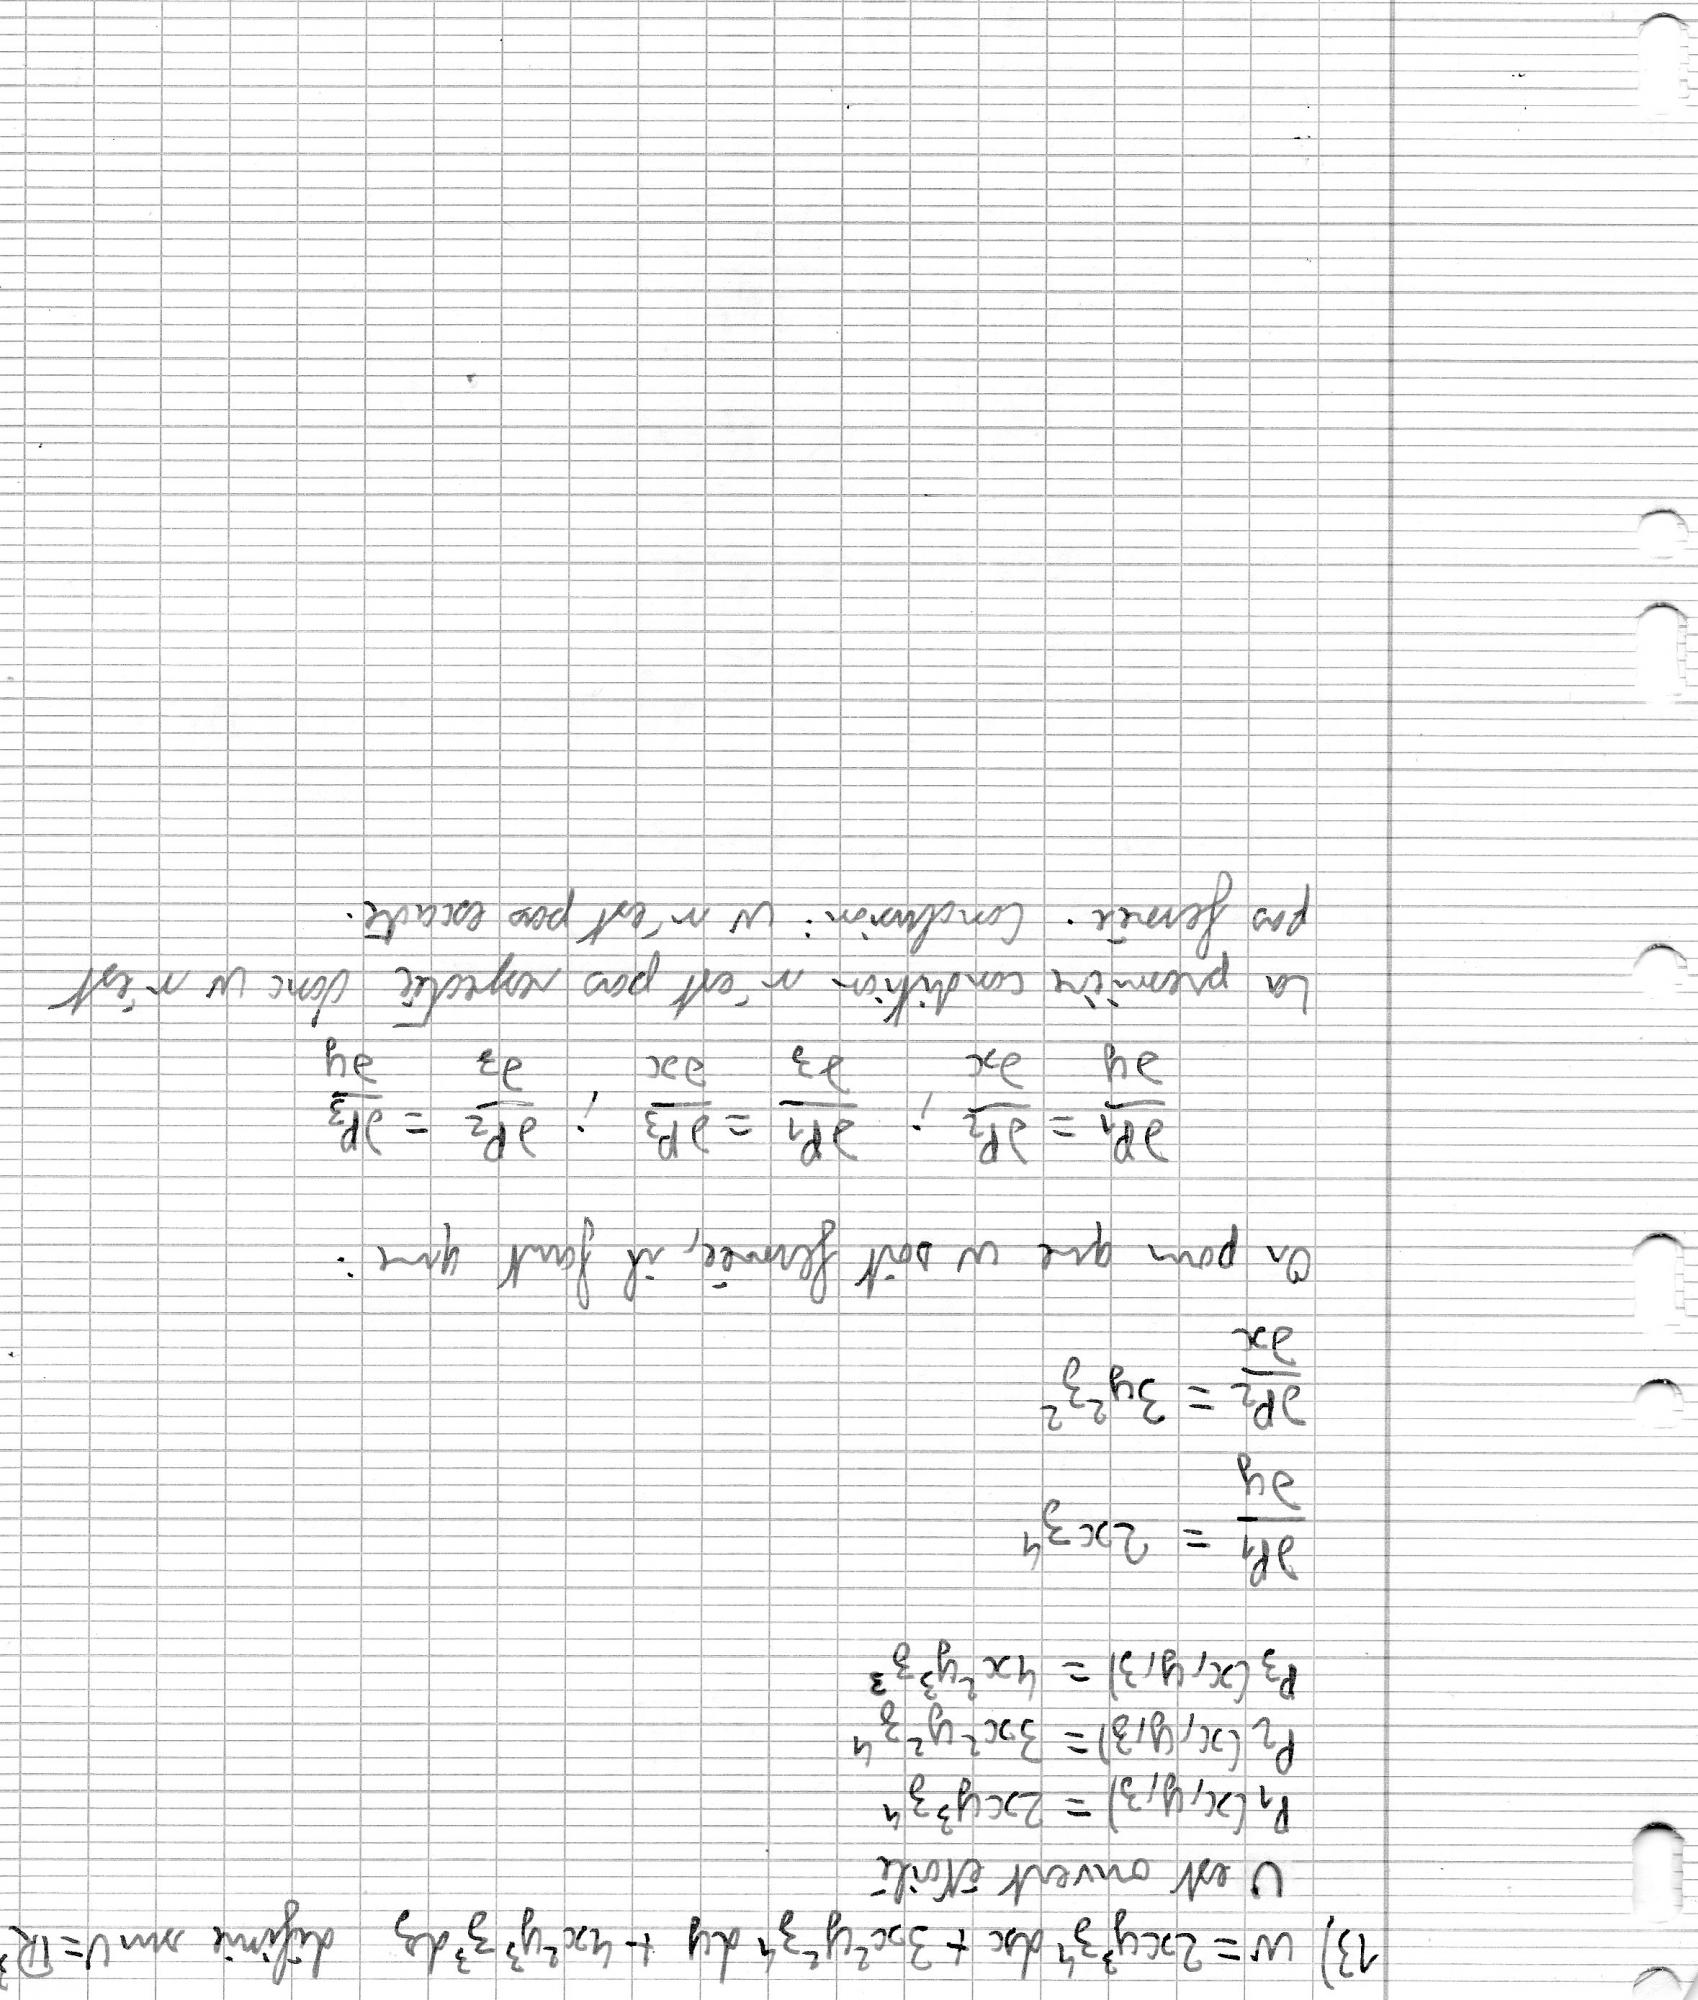 13) w = 2xy³z⁴ dx + 3x²y²z⁴ dy + 4x²y³z³ dz définie sur U = ℝ³
U est ouvert étoilé
P₁(x, y, z) = 2xy³z⁴
P₂(x, y, z) = 3x²y²z⁴
P₃(x, y, z) = 4x²y³z³
∂P₁/∂y = 2xz⁴
∂P₂/∂x = 3y²z²
Or pour que w soit fermée, il faut que :
∂P₁/∂y = ∂P₂/∂x ; ∂P₁/∂z = ∂P₃/∂x ; ∂P₂/∂z = ∂P₃/∂y
La première condition n'est pas respectée donc w n'est
pas fermée. Conclusion : w n'est pas exacte.